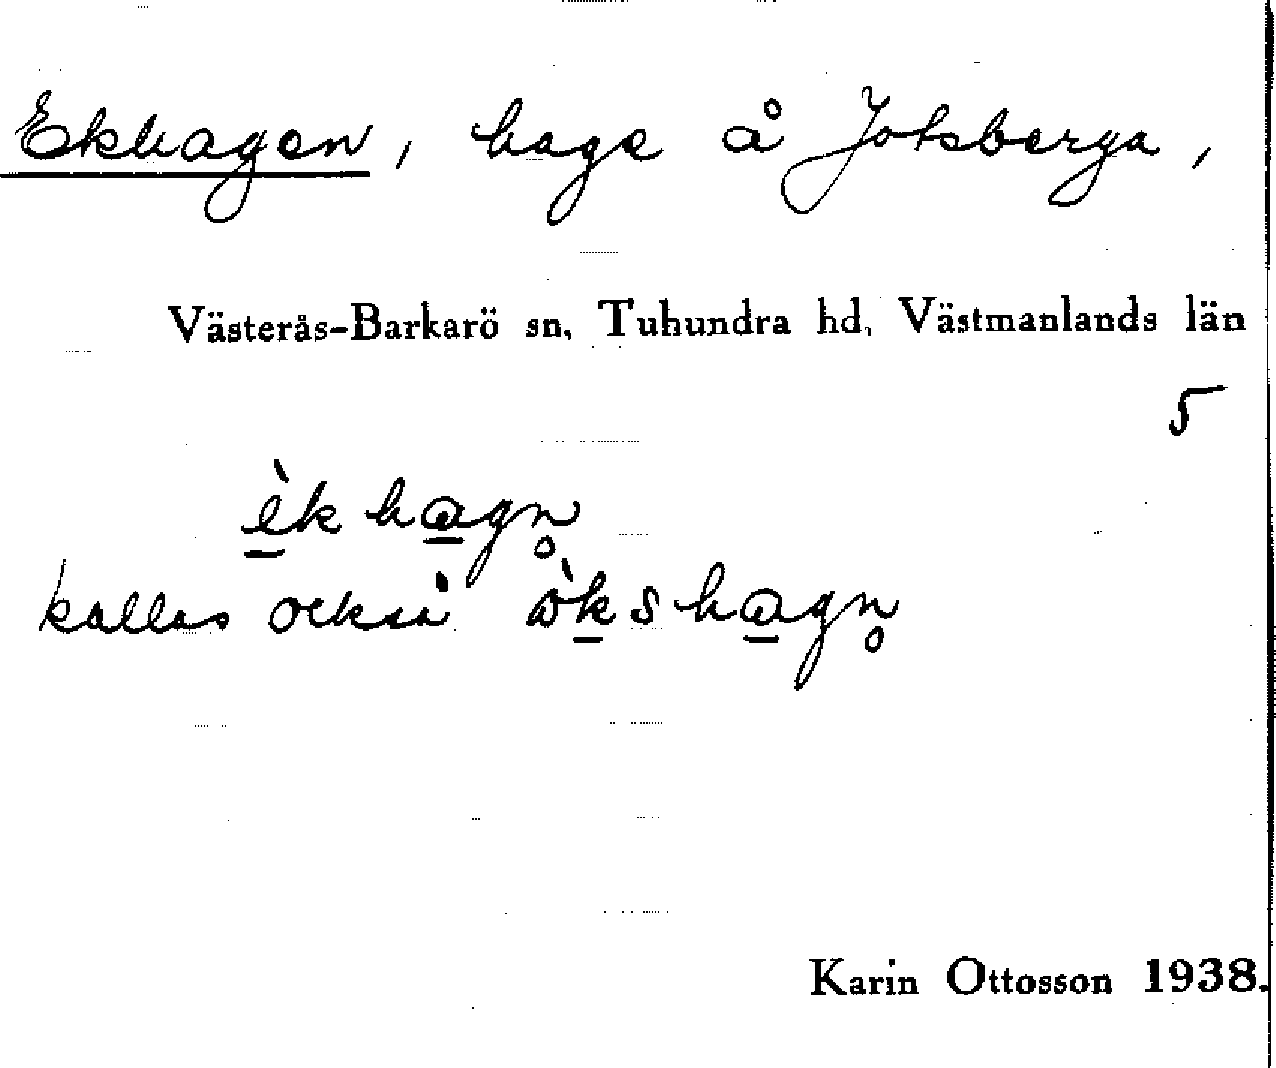 Ekhagen, hage å Jotsberga,
Västerås-Barkarö sn, Tuhundra hd, Västmanlands län
5
è̠k ha̠gn̥
kallas också òk̠sha̠gn̥
Karin Ottosson 1938.